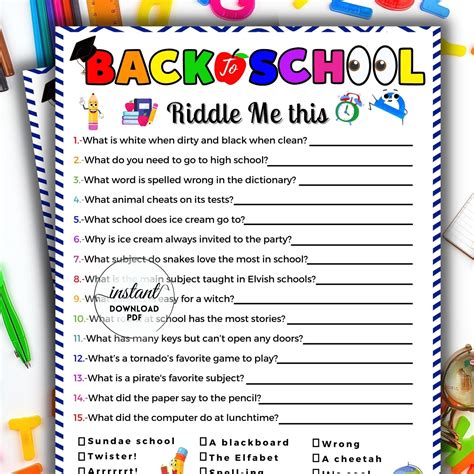 BACK To SCHOOL
Riddle Me this
1.-What is white when dirty and black when clean?
2.-What do you need to go to high school?
3.-What word is spelled wrong in the dictionary?
4.-What animal cheats on its tests?
5.-What school does ice cream go to?
6.-Why is ice cream always invited to the party?
7.-What subject do snakes love the most in school?
8.-What is the main subject taught in Elvish schools?
9.-What easy for a witch?
10.-What at school has the most stories?
instant
DOWNLOAD
PDF
11.-What has many keys but can't open any doors?
12.-What's a tornado's favorite game to play?
13.-What is a pirate's favorite subject?
14.-What did the paper say to the pencil?
15.-What did the computer do at lunchtime?
Sundae school A blackboard Wrong
Twister! The Elfabet A cheetah
Spelling It's cool